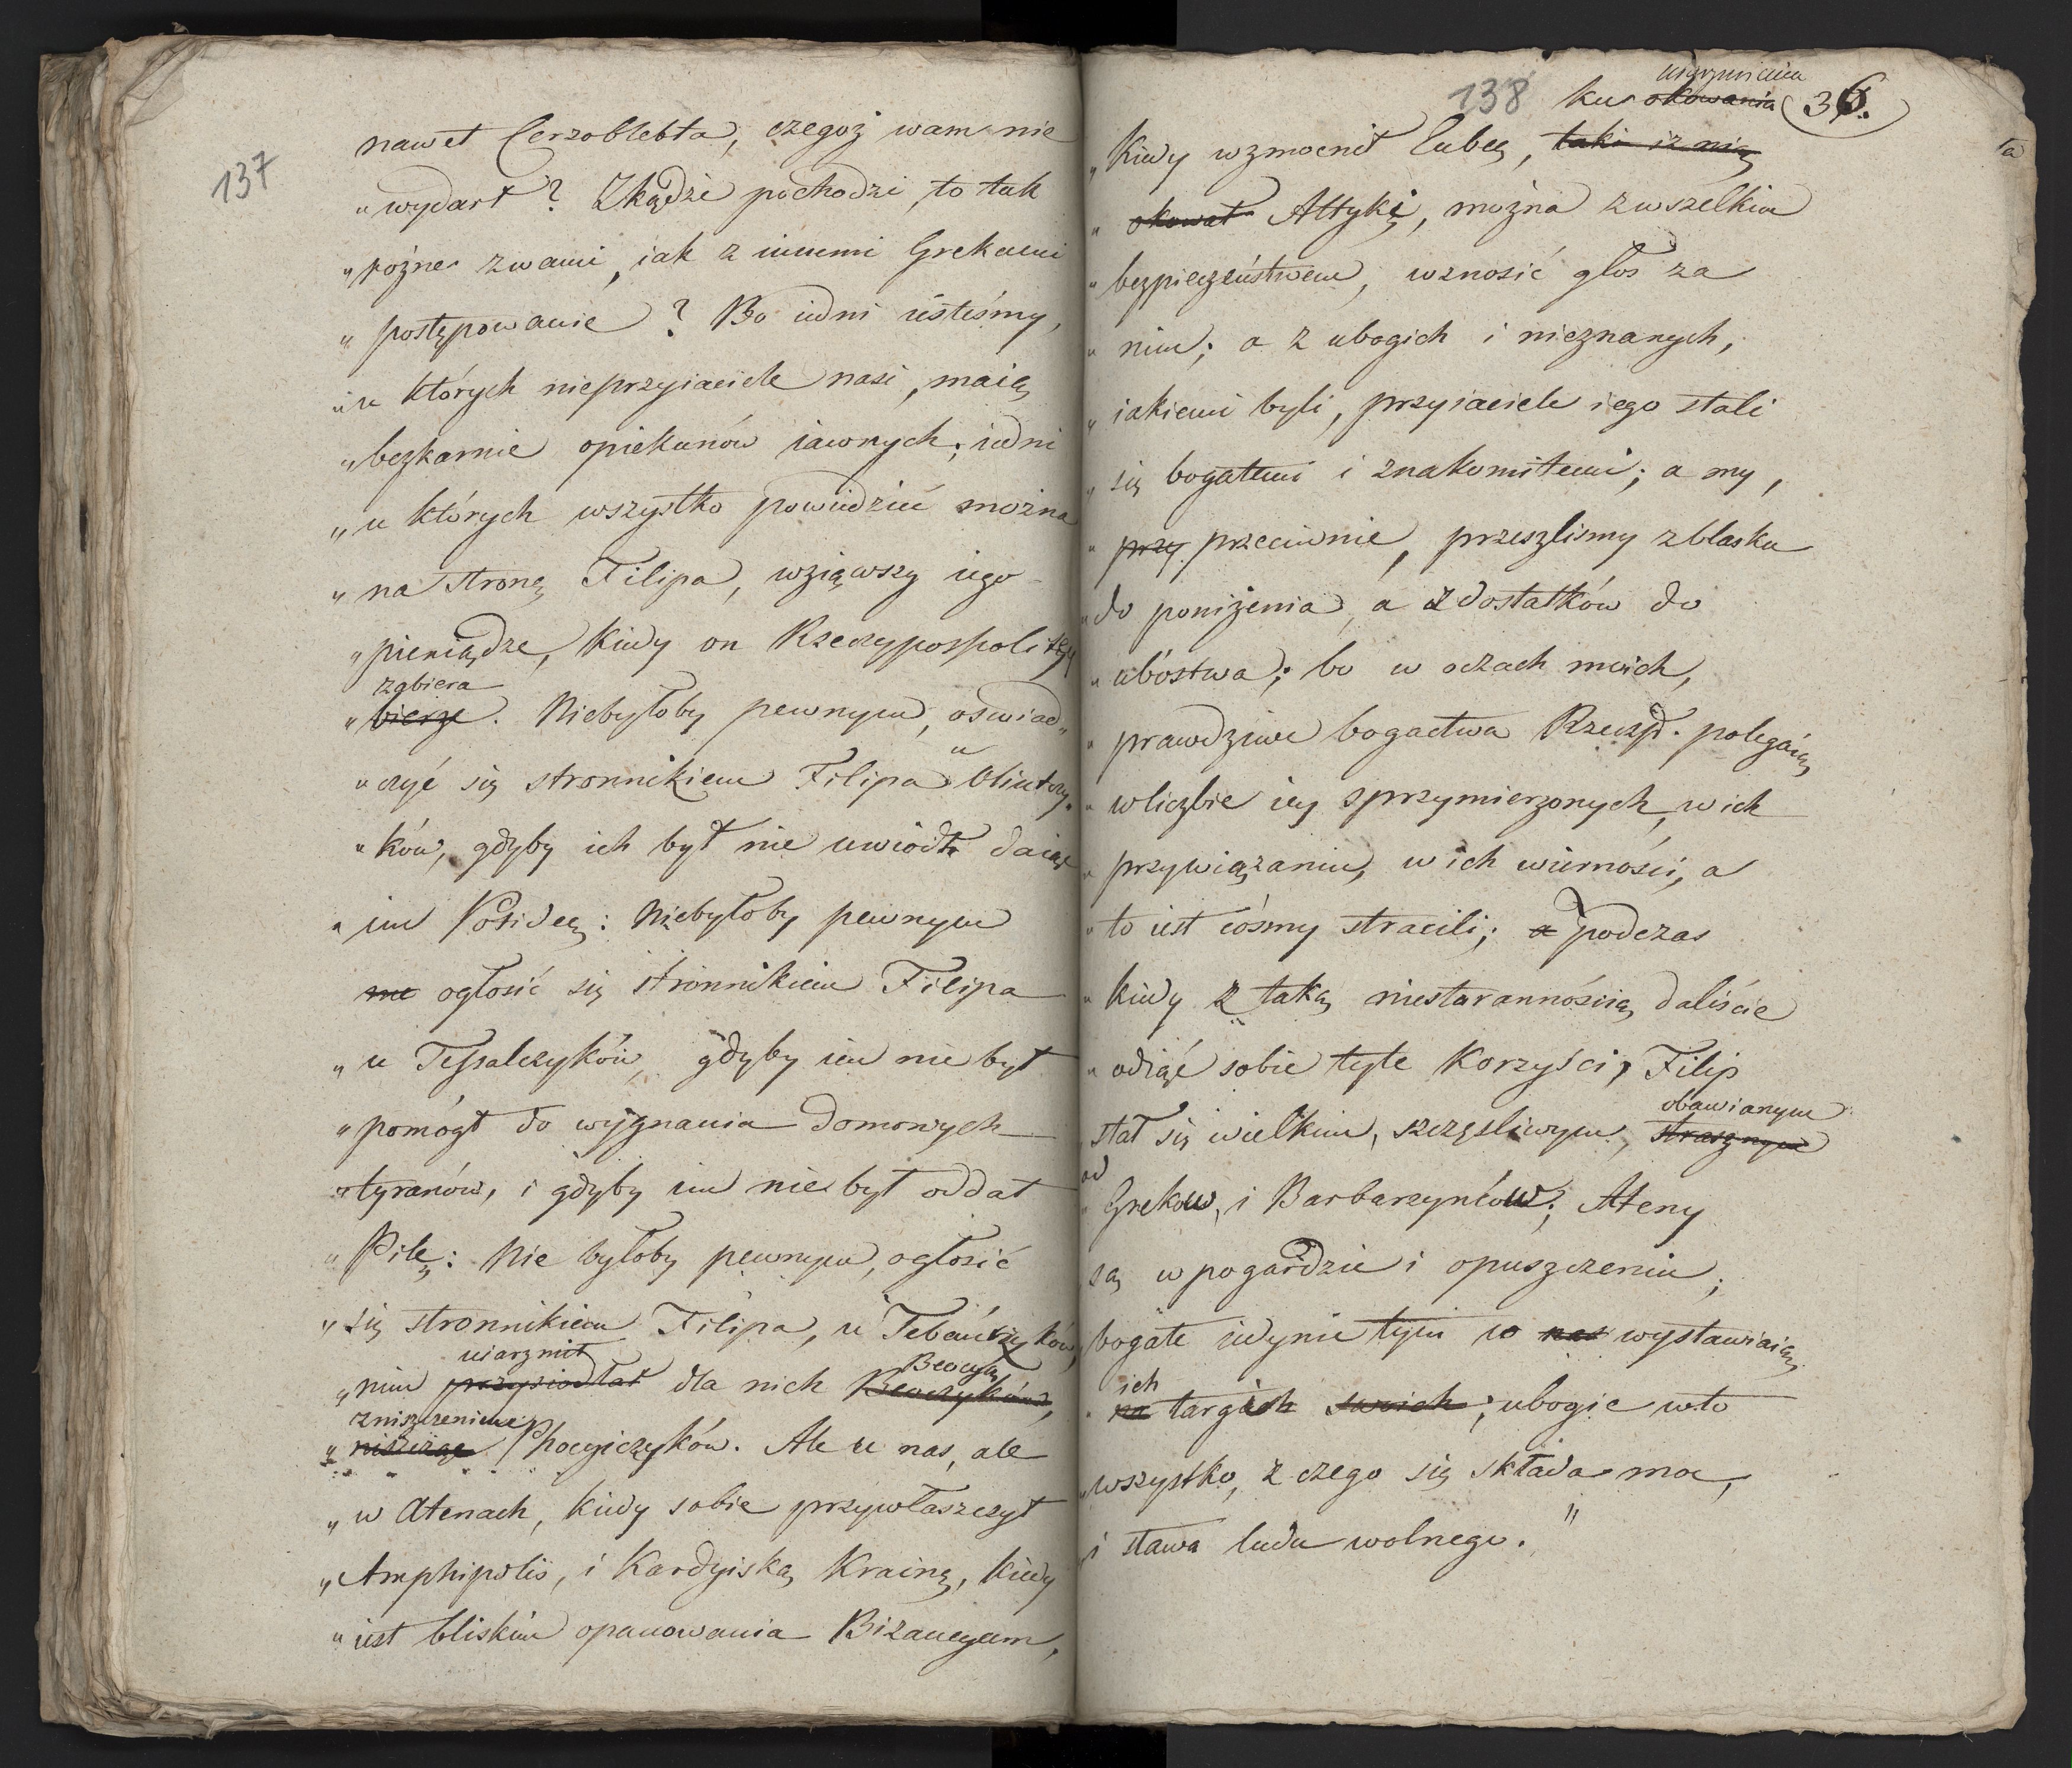 137
nawet Cerzoblebta, czegoż wam nie
„wydarł? Zkądże pochodzi, to tak
„różne z wami, iak z innemi Grekami
„postępowanie? Bo iedni iesteśmy,
„u których nieprzyiaciele nasi, maią
„bezkarnie opiekunów iawnych; iedni
„u których wszystko powiedzieć można
„na stronę Filipa, wziąwszy iego
„pieniądze, kiedy on Rzeczypospolitę
zabiera
„bierze. Niebyłoby pewnym, oświad„
„czyć się stronnikiem Filipa u Olintczy„
„ków, gdyby ich był nie uwiódł daiąc
„im Potideę: Niebyłoby pewnym
me ogłosić się stronnikiem Filipa
„u Tessalczyków, gdyby im nie był
„pomógł do wygnania domowych
„tyranów, i gdyby im nie był oddał
„Pilę: Nie byłoby pewnym, ogłosić
„się stronnikiem Filipa, u Tebańczyków,
uiarzmił Beocyą
„nim przysiodłał dla nich Beoczyków,
zniszczeniem
„niszcząc Phocyiczyków. Ale u nas, ale
„w Atenach, kiedy sobie przywłaszczył
„Amphipolis, i Kardyiską Krainę, kiedy
„iest bliskim opanowania Bizancyum,
138 ku okowania 36.
„kiedy wzmocnił Eubeę, taki iż nią
„okował Attykę, można z wszelkim
„bezpieczeństwem, wznosić głos za
„nim; a z ubogich i nieznanych,
„iakiemi byli, przyiaciele iego stali
„się bogatemi i znakomitemi; a my,
„przy przeciwnie, przeszlismy z blasku
„do poniżenia, a z dostatków do
„ubóstwa; bo w oczach moich,
„prawdziwe bogactwa Rzeczp. polegaią
„w liczbie iey sprzymierzonych, w ich
„przywiązaniu, w ich wierności, a
„to iest cośmy stracili; a podczas
„kiedy z taką niestarannością daliście
„odiąć sobie tyle korzyści, Filip
obawianym
„stał się wielkim, szczęśliwym, strasznym
od
„Greków, i Barbarzyńców; Ateny
są w pogardzie i opuszczeniu;
bogate iedynie tym w nas wystawiaią
ich
„na targach swoich; ubogie w to
„wszystko, z czego się składa moc,
„i sława ludu wolnego."
ta